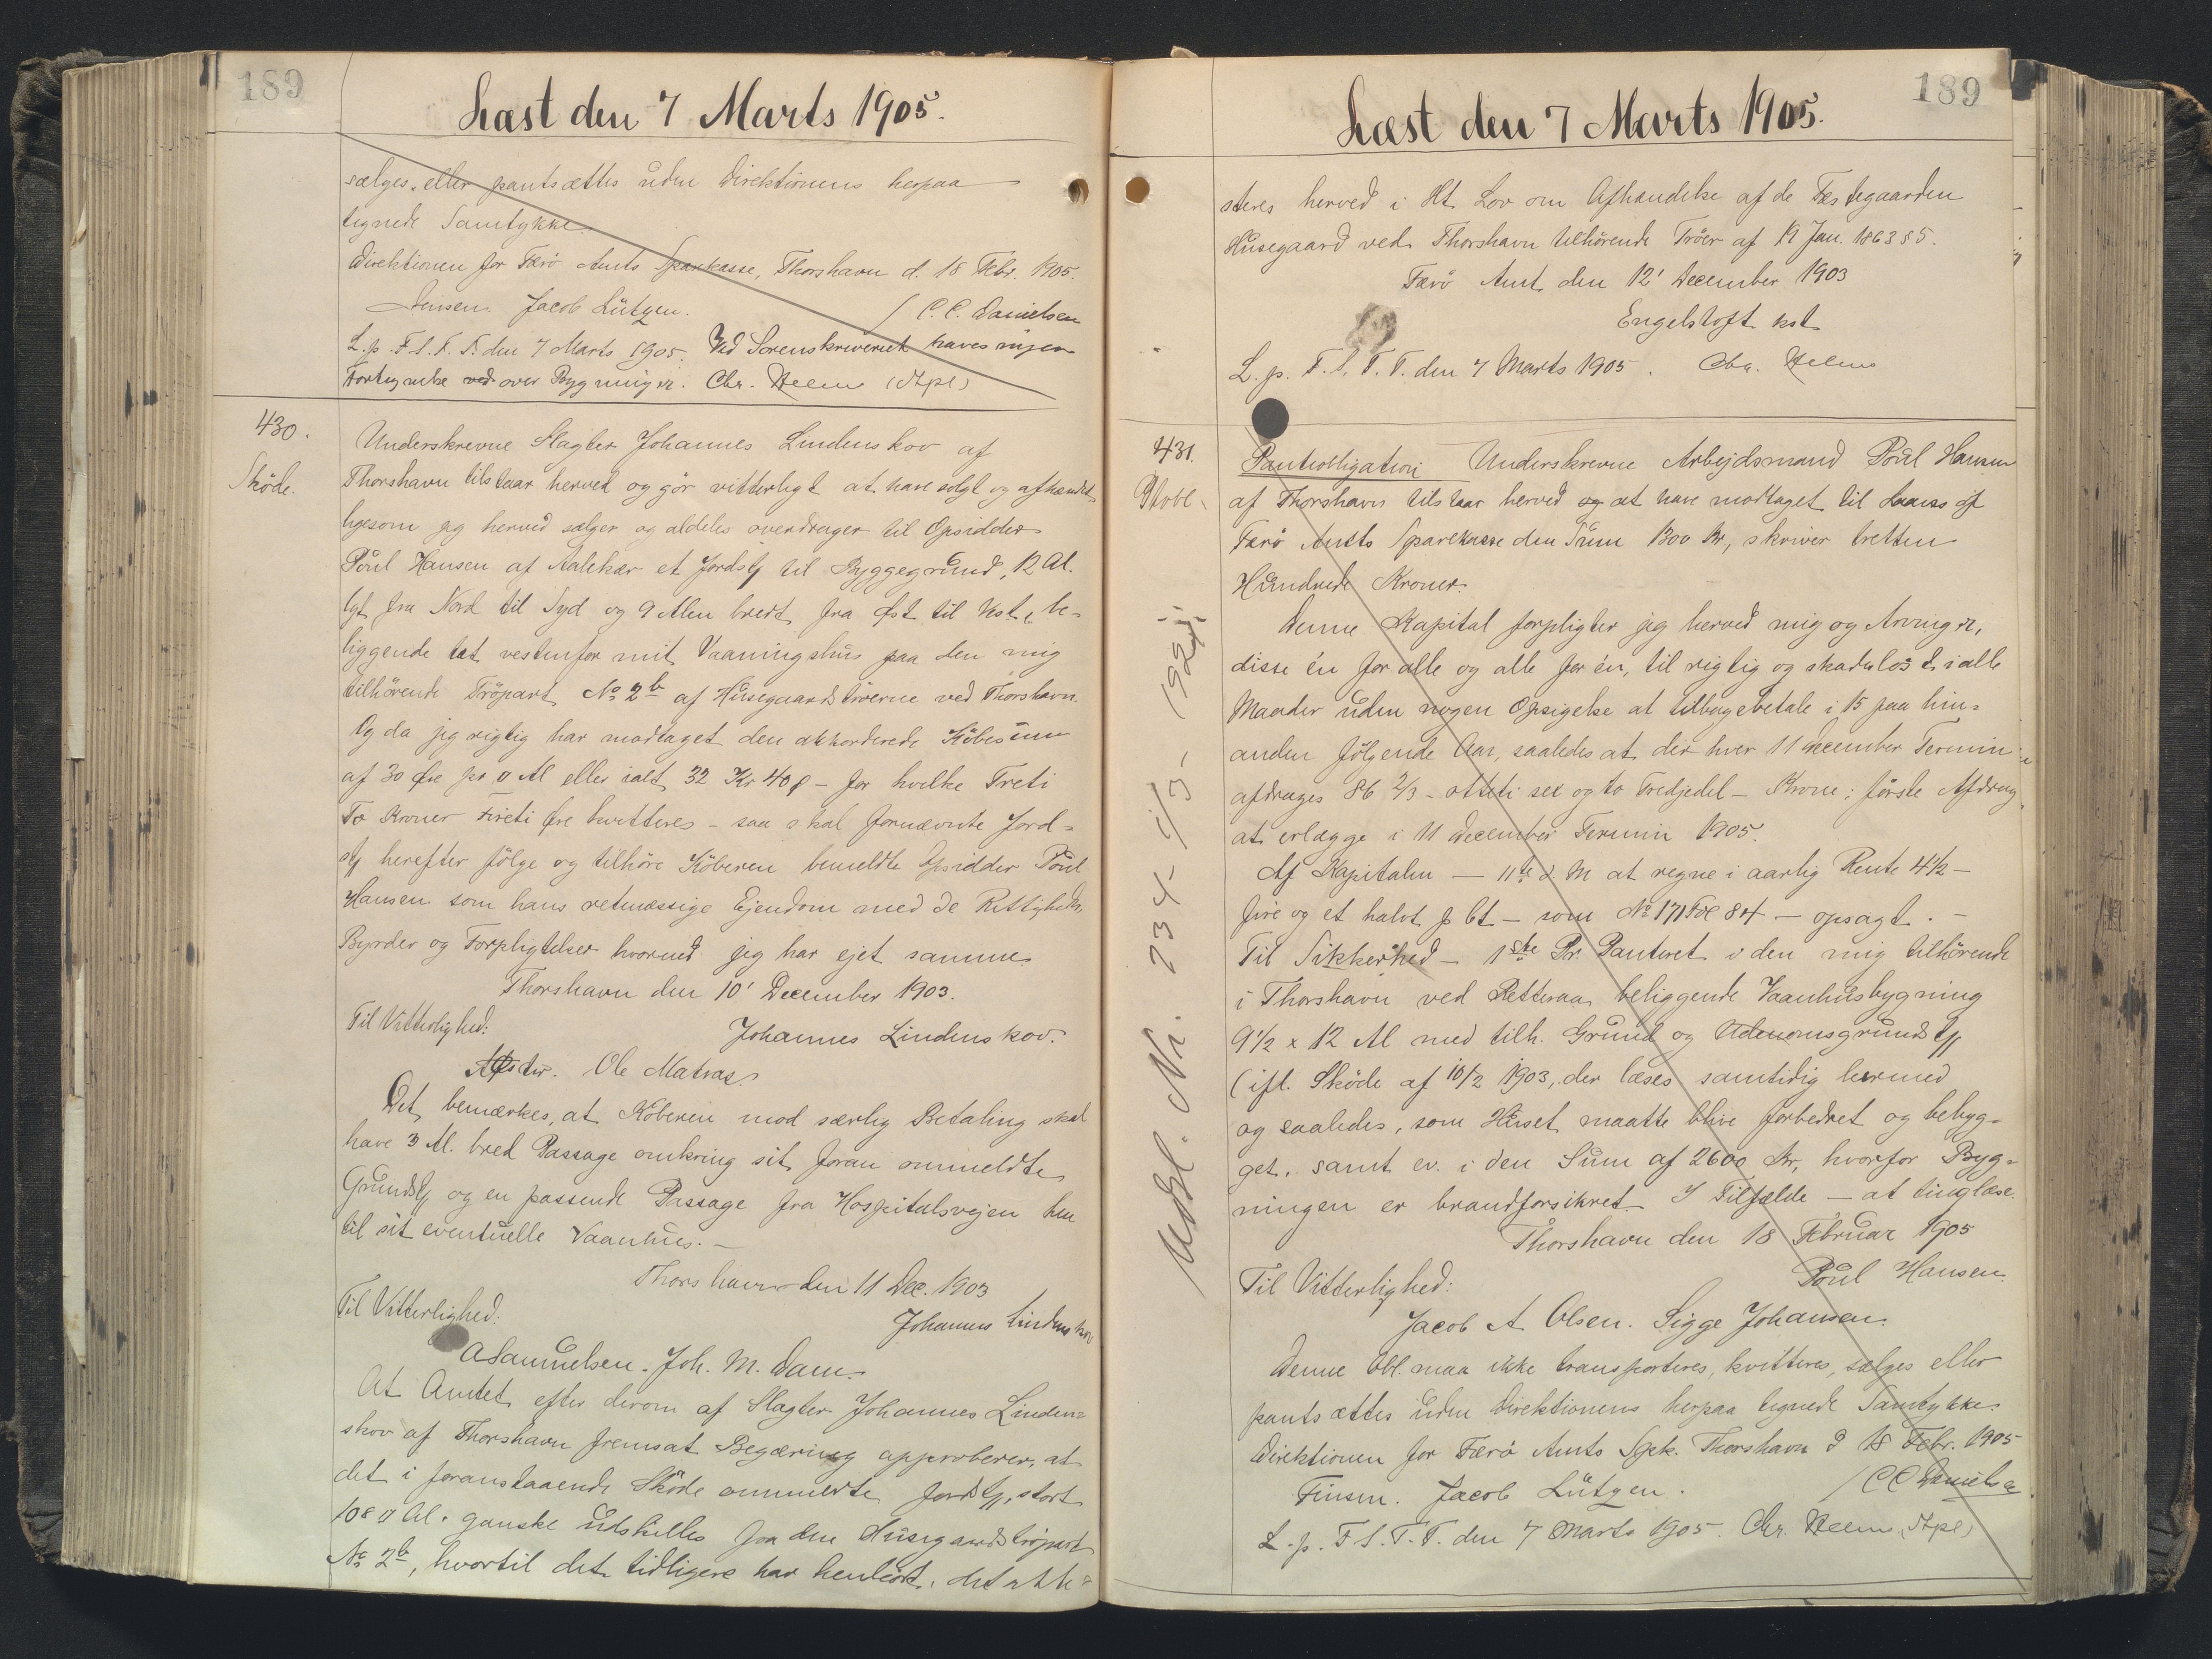 189
Læst den 7 Marts 1905.
sælges eller pantsættes uden Direktionens herpaa
tegnede Samtykke.
Direktionen for Færö Amts Sparekasse, Thorshavn d. 18 Febr. 1905.
Jensen. Jacob Lützen. / C. C. Danielsen
L. p. F. S. T. T. den 7 Marts 1905. Ved Sorenskriveriet haves ingen
Fortegnelse ved over Bygninger. Chr. Helms (Stpl)
430.
Sköde.
Underskrevne Slagter Johannes Lindenskov af
Thorshavn tilstaar herved og gör vitterligt at have solgt og afhændet
ligesom jeg herved sælger og aldeles overdrager til Opsidder
Poul Hansen af Aalekær et Jordstk til Byggegrund, 12 Al.
lgt fra Nord til Syd og 9 Alen bredt fra Øst til Vest, be-
liggende tæt vestenfor mit Vaaningshus paa den mig
tilhörende Tröpart No 2b af Husegaardströerne ved Thorshavn.
Og da jeg rigtig har modtaget den akkorderede Köbesum
af 30 Øre pr □ Al eller ialt 32 Kr 40 ø - for hvilke Treti
To Kroner Fireti Øre kvitteres - saa skal fornævnte Jord-
stk herefter fölge og tilhöre Köberen bemeldte Opsidder Poul
Hansen som hans retmæssige Ejendom med de Rettigheder,
Byrder og Forpligtelser hvormed jeg har ejet samme.
Thorshavn den 10' December 1903.
Til Vitterlighed: Johannes Lindenskov.
Ole Matras.
Det bemærkes, at Köberen mod særlig Betaling skal
have 3 Al. bred Passage omkring sit foran ommeldte
Grundstk og en passende Passage fra Hospitalsvejen hen
til sit eventuelle Vaanhus. -
Thorshavn den 11 Dec. 1903
Til Vitterlighed: Johannes Lindenskov
A Samuelsen. Joh. M. Dam.
At Amtet efter derom af Slagter Johannes Linden-
skov af Thorshavn fremsat Begæring approberer, at
det i foranstaaende Sköde ommeldte Jordstk, stort
108 □ Al. ganske udskilles fra den Husegaardströpart
No 2b, hvortil det tidligere har henhört, det atte-
189
Læst den 7 Marts 1905.
steres herved i Hht Lov om Afhændelse af de Fæstegaarden
Husegaard ved Thorshavn tilhörende Tröer af 19 Jan. 1863 § 5.
Færö Amt den 12' December 1903
Engelstoft kst
L. p. F. S. T. T. den 7 Marts 1905. Chr. Helms
431.
Ptobl.
Pantobligation Underskrevne Arbejdsmand Poul Hansen
af Thorshavn tilstaar herved og at have modtaget til Laans af
Færö Amts Sparekasse den Sum 1300 Kr, skriver tretten
Hundrede Kroner.
Denne Kapital forpligter jeg herved mig og Arvinger,
disse én for alle og alle for én, til rigtig og skadeslöst i alle
Maader uden nogen Opsigelse at tilbagebetale i 15 paa hin-
anden fölgende Aar, saaledes at der hver 11 December Termin
afdrages 86 2/3 - otteti sex og to Tredjedel - Krone; förste Afdrag
at erlægge i 11 December Termin 1905.
Af Kapitalen - 11te d. M at regne i aarlig Rente 4½ -
fire og et halvt p Ct - som No 171 Fol 84 - opsagt. -
Til Sikkerhed - 1ste Pr. Panteret i den mig tilhörende
i Thorshavn ved Retteraa beliggende Vaanhusbygning
9½ x 12 Al med tilh. Grund og Udenomsgrundstk
(ifl. Sköde af 10/12 1903, der læses samtidig hermed
og saaledes, som Huset maatte blive forbedret og bebyg-
get, samt ev. i den Sum af 2600 Kr, hvorfor Byg-
ningen er brandforsikret. I Tilfælde - at tinglæse.
Thorshavn den 18 Februar 1905
Til Vitterlighed: Poul Hansen.
Jacob A Olsen. Sigge Johansen.
Denne Obl. maa ikke transporteres, kvitteres, sælges eller
pantsættes uden Direktionens herpaa tegnede Samtykke.
Direktionen for Færö Amts Spk. Thorshavn d 18 Febr. 1905
Finsen. Jacob Lützen. / C C Danielsen
L. p. F. S. T. T. den 7 Marts 1905. Chr. Helms, Stpl)
Udsl. Nr. 234 -